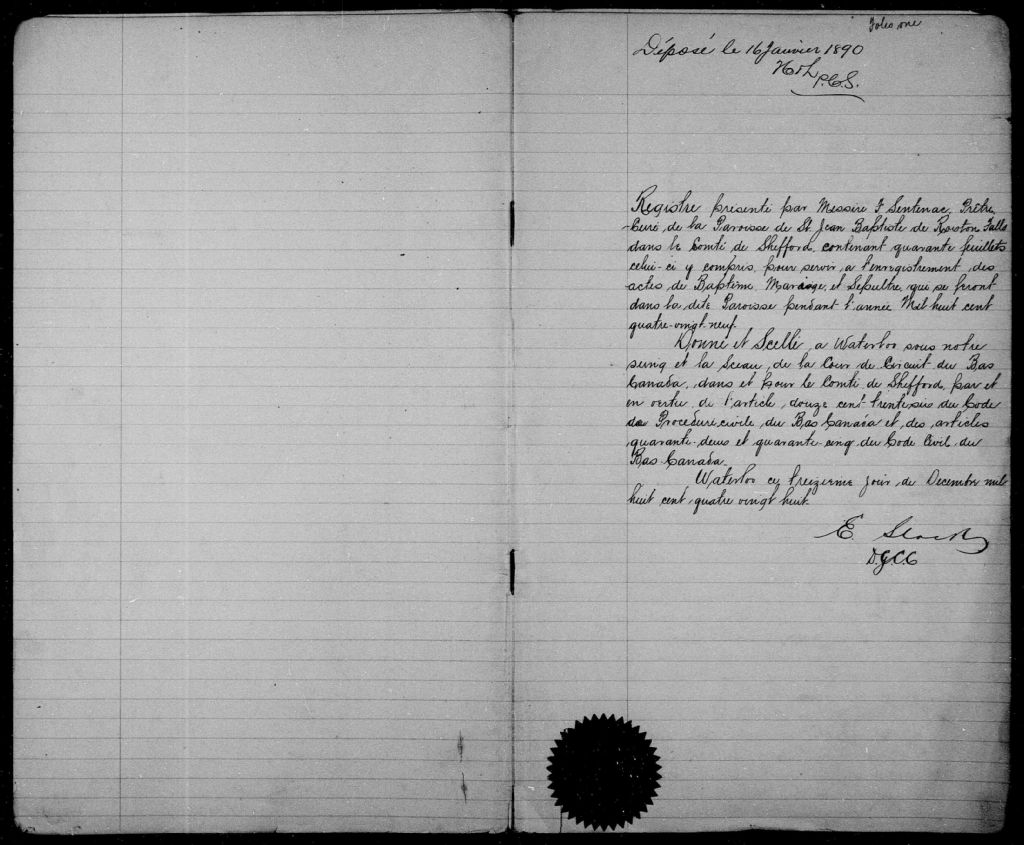 Folio one
Déposé le 16 Janvier 1890
P.C.S.
Registre présenté par Messire F. Sentenac, Prêtre,
Curé, de la Paroisse de St. Jean Baptiste de Roxton Falls
dans le Comté de Shefford, contenant quarante feuillets
celui-ci y compris, pour servir, a l'enregistrement des
actes de Baptême, Mariage, et Sepultre, qui se feront
dans la dite Paroisse pendant l'année Mil huit cent
quatre-vingt neuf.
Donné et Scellé, a Waterloo sous notre
seing et la Sceau, de la Cour de Circuit du Bas
Canada, dans et pour le Comté de Shefford, par et
en vertu de l'article, douze cent trente six du Code
de Procedure civile, du Bas Canada et des articles
quarante-deux et quarante-cinq du Code Civil du
Bas-Canada.
Waterloo ce treizieme jour de Decembre mil
huit cent quatre vingt huit.
E.
D.G.C.C